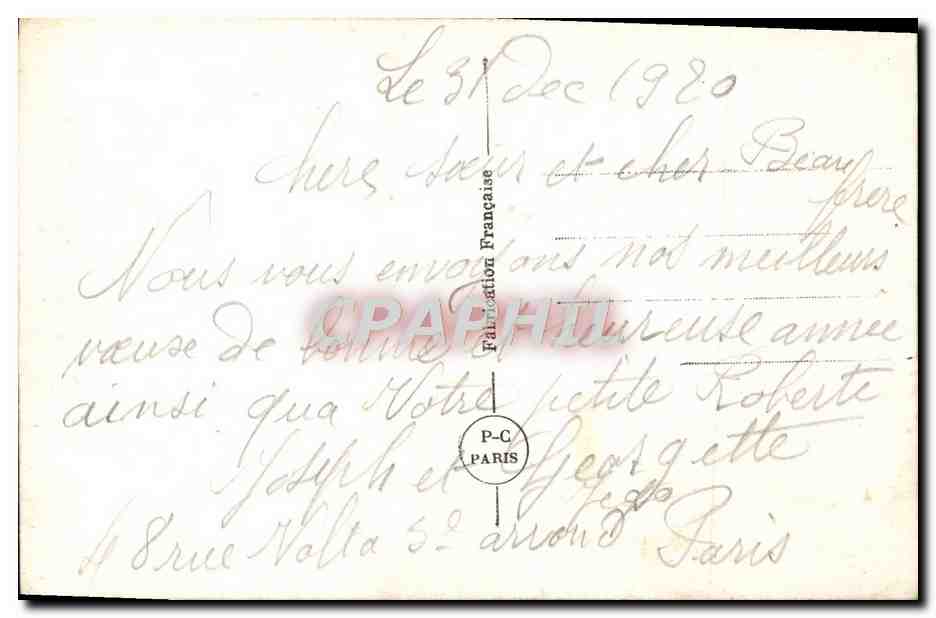 Le 31 Dec 1920
chere sœur et cher Beau
frere
Nous vous envoyons nos meilleurs
vœuse de bonne et heureuse année
ainsi qua Votre petite Roberte
Joseph et Georgette
48 rue Volta 3e arrond Paris
Fabrication Française
P-C
PARIS
CPAPHIL